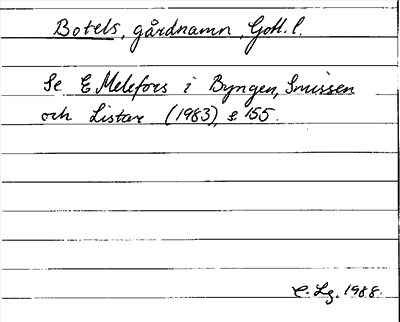 Botels, gårdnamn, Gotl. l.
Se E Melefors i Byngen, Smissen
och Listar (1983), s 155.
C. Lg. 1988.